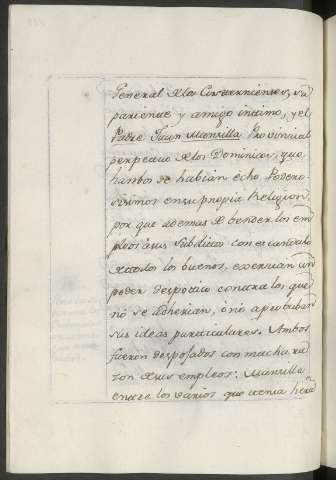 General de los Cisternienses, su
pariente y amigo intimo, y el
Padre Juan Mansilla Provincial
perpetuo de los Dominicos, que
hambos se habian echo Podero-
sisimos en su propia Religion,
por que ademas de bender los em
pleos a sus subditos con escandalo
de todos los buenos, exercian un
poder despotico contra los que
no se adherian, ó no aprobaban
sus ideas particulares. Ambos
fueron desposados con mucha ra
zon de sus empleos. Mansilla
entre los varios que tenia hera